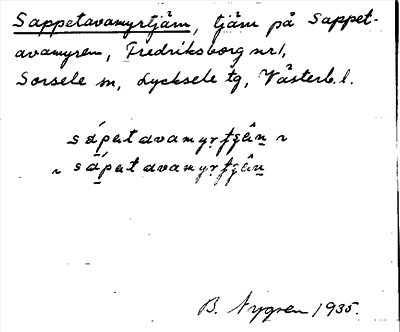 Sappetavamyrtjärn, tjärn på Sappet-
avamyren, Fredriksborg nr 1,
Sorsele sn, Lycksele tg, Västerb. l.
sápatavamyṛtjän̂ ~
~ sápatavamyṛtjän̂
B. Nygren 1935.